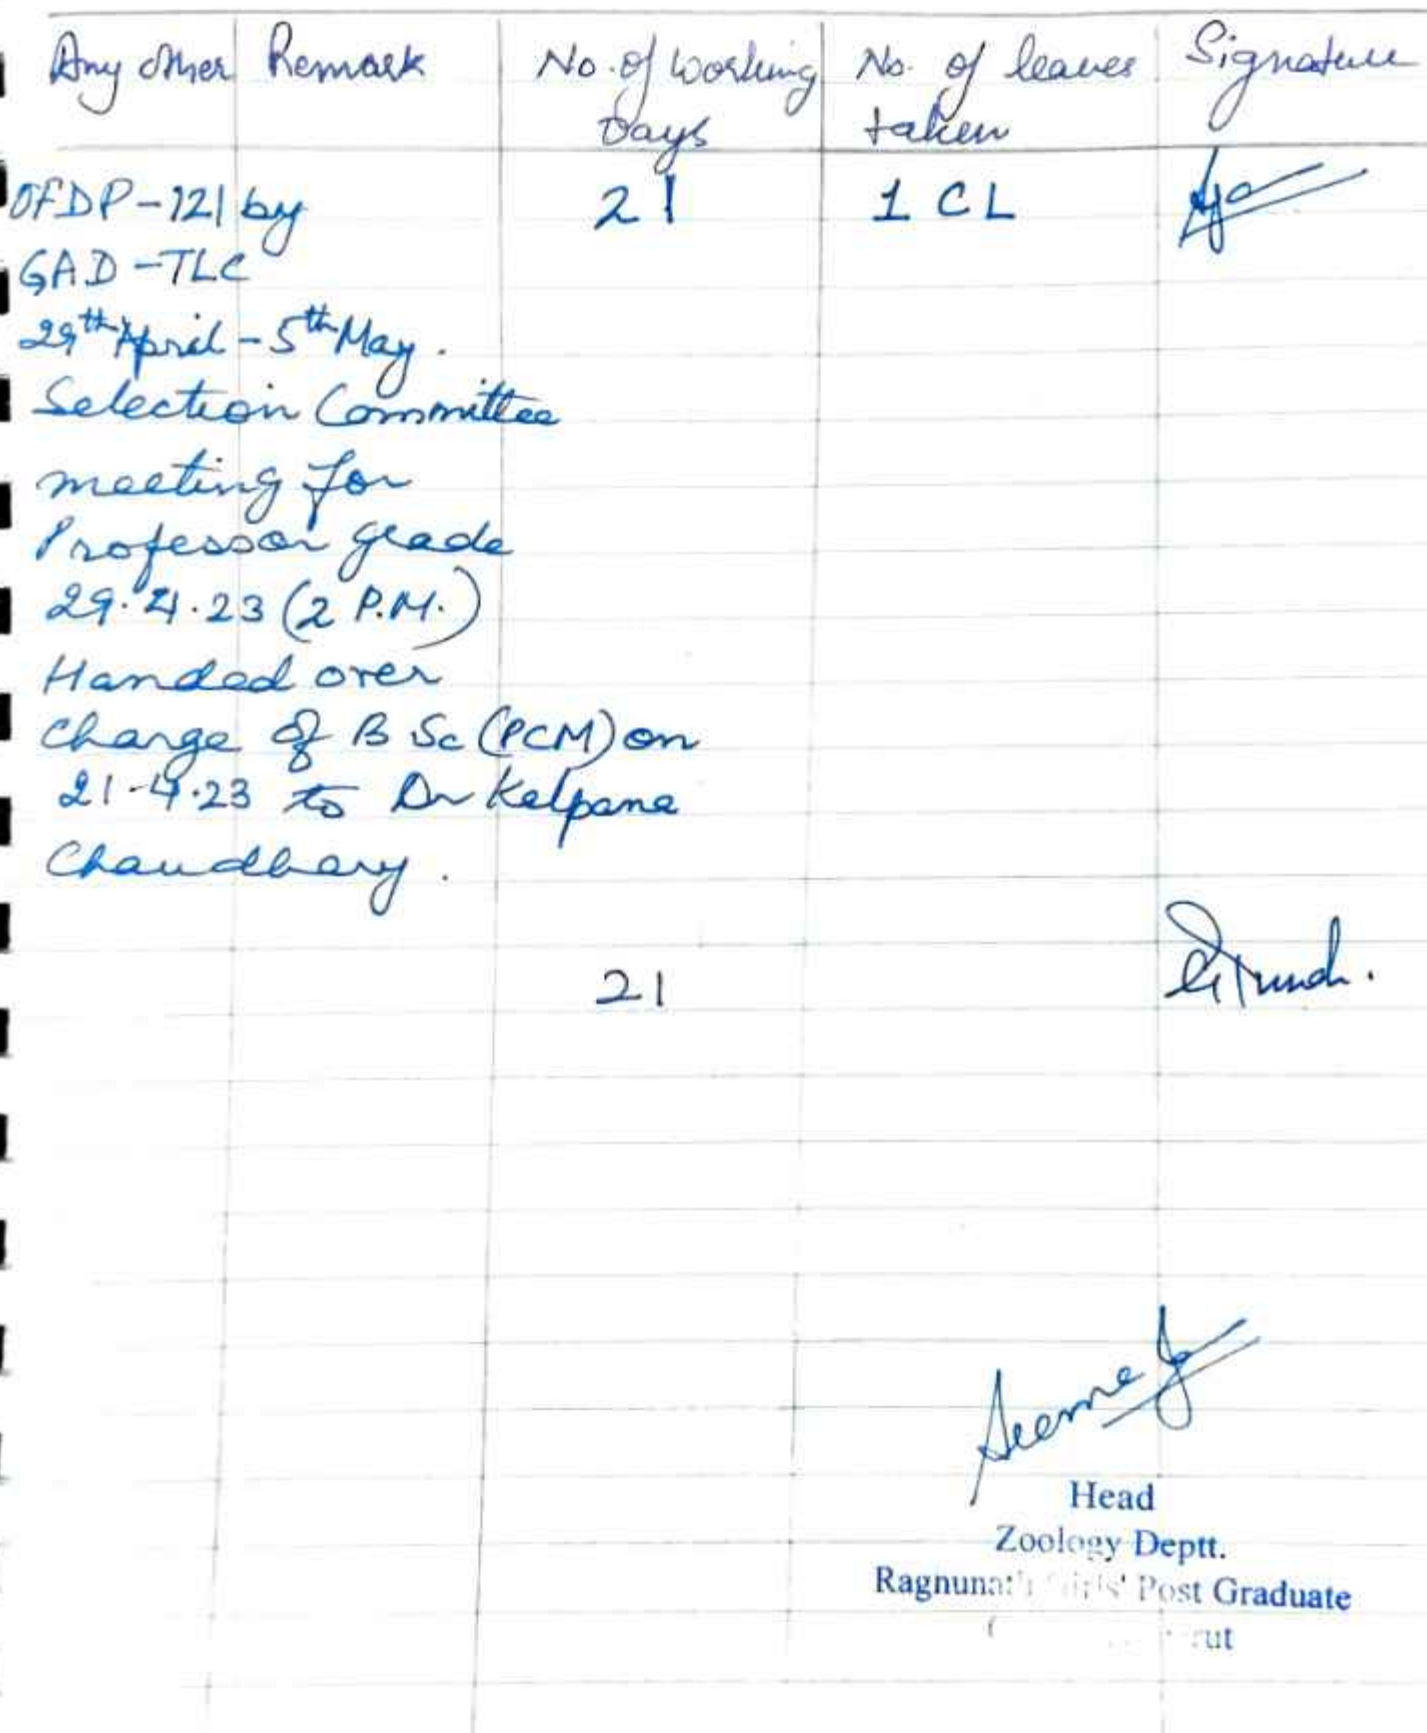 Any other Remark No. of working No. of leaves Signature
Days taken
OFDP-121 by 21 1 CL
GAD-TLC
29th April - 5th May.
Selection Committee
meeting for
Professor grade
29.4.23 (2 P.M.)
Handed over
Charge of B Sc (PCM) on
21.4.23 to Dr Kalpana
Chaudhary.
21
Seema
Head
Zoology Deptt.
Post Graduate